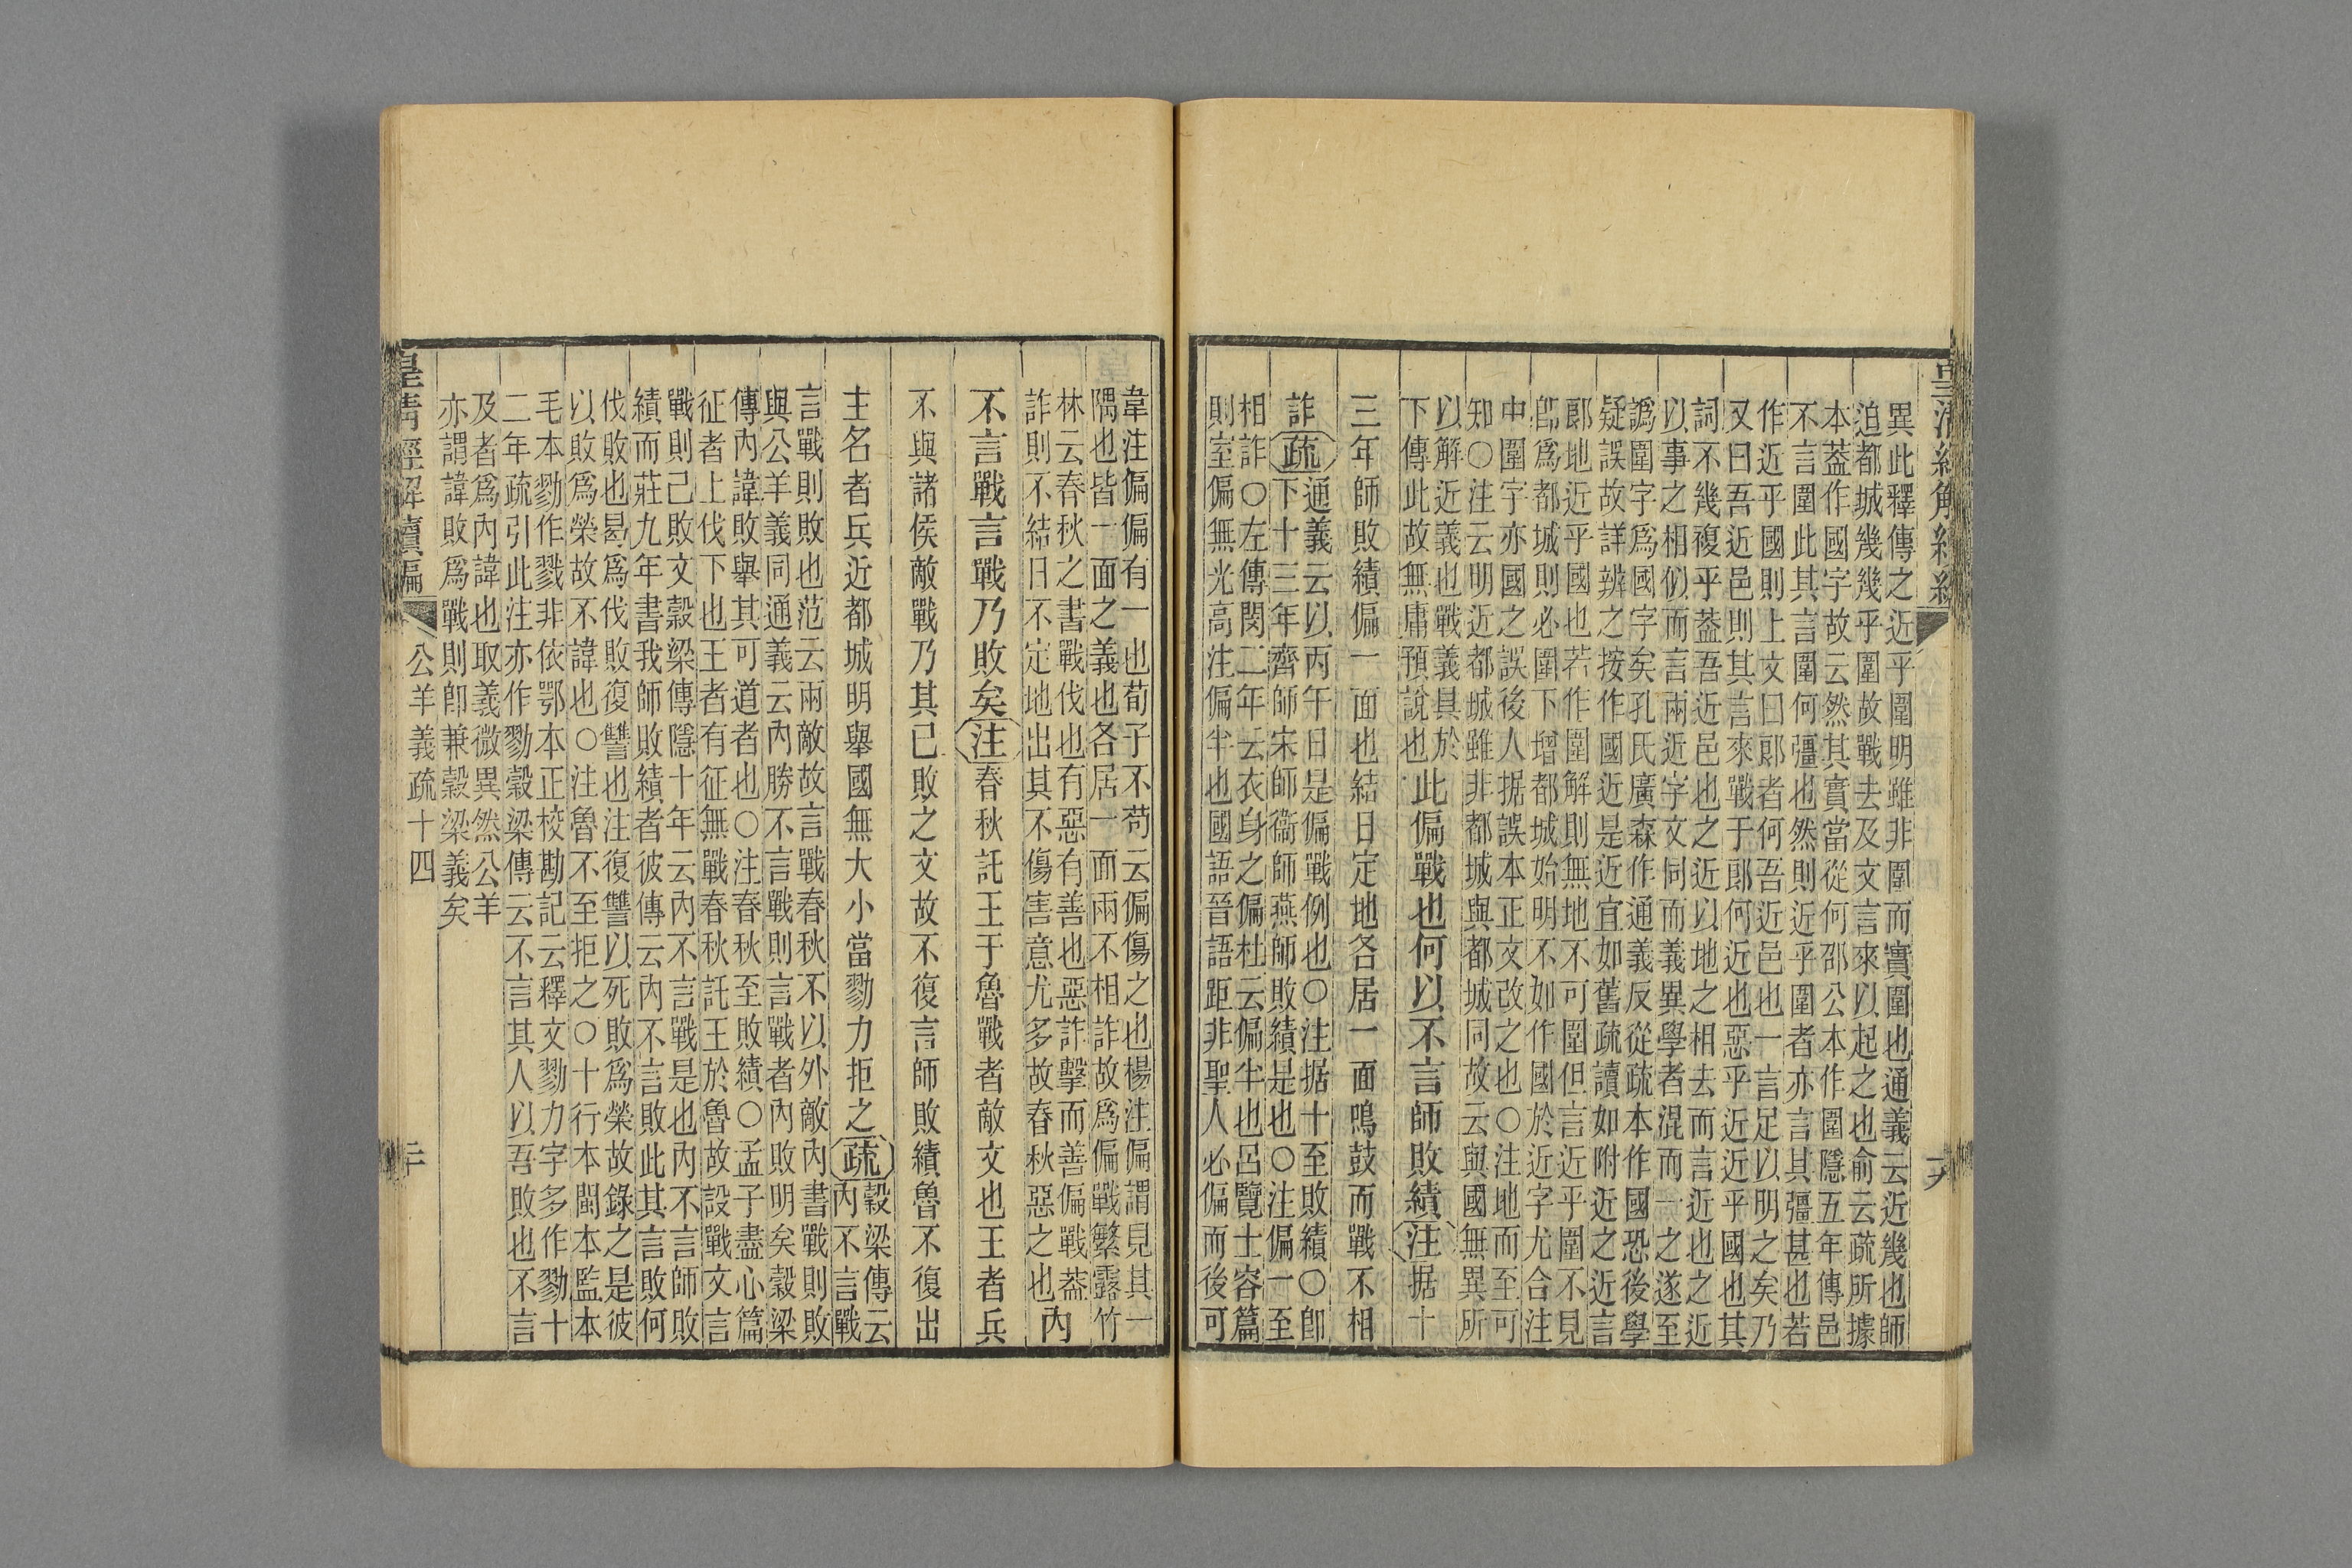 皇清經解續編
異此釋傳之近乎圍明雖非圍而實圍也通義云近幾也師
迫都城幾幾乎圍故戰去及文言來以起之也俞云疏所據
本蓋作國字故云然其實當從何邵公本作圍隱五年傳邑
不言圍此其言圍何彊也然則近乎圍者亦言其彊甚也若
作近乎國則上文曰郎者何吾近邑也一言足以明之矣乃
又曰吾近邑則其言來戰于郎何近也惡乎近近乎國也其
詞不幾複乎蓋吾近邑也之近以地之相去而言近也之近
以事之相似而言兩近字文同而義異學者混而一之遂至
譌圍字爲國字矣孔氏廣森作通義反從疏本作國恐後學
疑誤故詳辨之按作國近是近宜如舊疏讀如附近之近言
郎地近乎國也若作圍解則無地不可圍但言近乎圍不見
郎爲都城則必圍下增都城始明不如作國於近字尤合注
中圍字亦國之誤後人据誤本正文改之也○注地而至可
知○注云明近都城雖非都城與都城同故云與國無異所
以解近義也戰義具於
下傳此故無庸預說也
此偏戰也何以不言師敗績注据十
三年師敗績偏一面也結日定地各居一面鳴鼓而戰不相
詐疏
通義云以丙午日是偏戰例也○注据十至敗績○卽
下十三年齊師宋師衞師燕師敗績是也○注偏一至
相詐○左傳閔二年云衣身之偏杜云偏半也呂覽士容篇
則室偏無光高注偏半也國語晉語距非聖人必偏而後可
韋注偏偏有一也荀子不苟云偏傷之也楊注偏謂見其一
隅也皆一面之義也各居一面兩不相詐故爲偏戰繁露竹
林云春秋之書戰伐也有惡有善也惡詐擊而善偏戰蓋
詐則不結日不定地出其不傷害意尤多故春秋惡之也
內
不言戰言戰乃敗矣注春秋託王于魯戰者敵文也王者兵
不與諸侯敵戰乃其已敗之文故不復言師敗績魯不復出
主名者兵近都城明舉國無大小當勠力拒之疏
穀梁傳云
內不言戰
言戰則敗也范云兩敵故言戰春秋不以外敵內書戰則敗
與公羊義同通義云內勝不言戰則言戰者內敗明矣穀梁
傳內諱敗舉其可道者也○注春秋至敗績○孟子盡心篇
征者上伐下也王者有征無戰春秋託王於魯故設戰文言
戰則己敗文穀梁傳隱十年云內不言戰是也內不言師敗
績而莊九年書我師敗績者彼傳云內不言敗此其言敗何
伐敗也曷爲伐敗復讐也注復讐以死敗爲榮故錄之是彼
以敗爲榮故不諱也○注魯不至拒之○十行本閩本監本
毛本勠作戮非依鄂本正校勘記云釋文勠力字多作勠十
二年疏引此注亦作勠穀梁傳云不言其人以吾敗也不言
及者爲內諱也取義微異然公羊
亦謂諱敗爲戰則卽兼穀梁義矣
皇清經解續編
公羊義疏十四